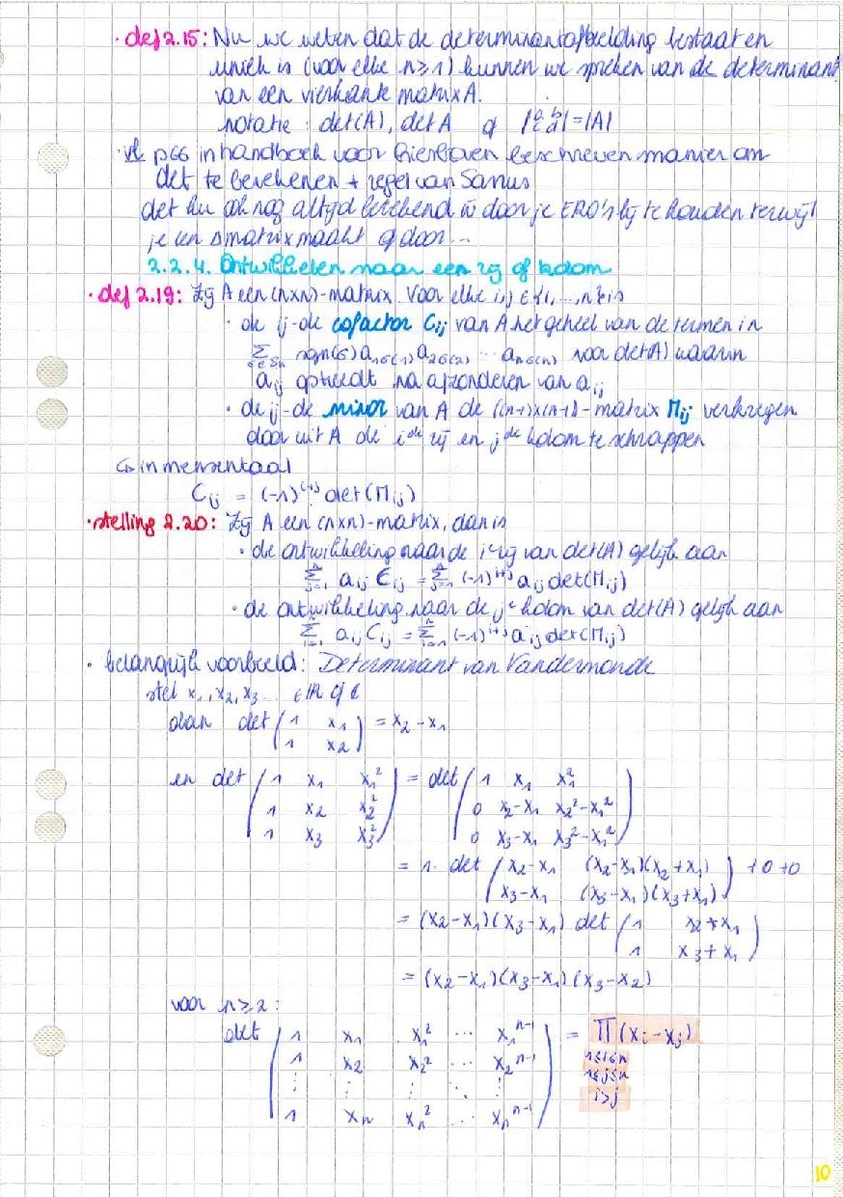 · def 2.15: Nu we weten dat de determinantafbeelding bestaat en
uniek is (voor elke n≥1) kunnen we spreken van de determinant
van een vierkante matrix A.
notatie: det(A), det A of |a b c d| = |A|
· p66 in handboek voor hierboven beschreven manier om
det te berekenen + regel van Sarrus
det ku ook nog altijd berekend w door je ERO's bij te houden terwijl
je een Δmatrix maakt of door...
2.2.4. Ontwikkelen naar een rij of kolom
· def 2.19: Zij A een (n×n)-matrix. Voor elke i,j ∈ {1,...,n} is
· de ij-de cofactor Cij van A het geheel van de termen in
∑σ∈Sn sgn(σ) a1σ(1) a2σ(2) ... anσ(n) voor det(A) waarin
aij optreedt na afzonderen van aij
· de ij-de minor van A de ((n-1)×(n-1))-matrix Mij verkregen
door uit A de i de rij en j de kolom te schrappen
↳ in mensentaal
Cij = (-1)^(i+j) det(Mij)
· stelling 2.20: Zij A een (n×n)-matrix, dan is
· de ontwikkeling naar de i e rij van det(A) gelijk aan
∑(j=1→n) aij Cij = ∑(j=1→n) (-1)^(i+j) aij det(Mij)
· de ontwikkeling naar de j e kolom van det(A) gelijk aan
∑(i=1→n) aij Cij = ∑(i=1→n) (-1)^(i+j) aij det(Mij)
· belangrijk voorbeeld: Determinant van Vandermonde
stel x₁, x₂, x₃ ... ∈ ℝ of ℂ
dan det ( 1 x₁
1 x₂ ) = x₂ - x₁
en det ( 1 x₁ x₁² ) = det ( 1 x₁ x₁² )
1 x₂ x₂² 0 x₂-x₁ x₂²-x₁²
1 x₃ x₃² 0 x₃-x₁ x₃²-x₁²
= 1 · det ( x₂-x₁ (x₂-x₁)(x₂+x₁) ) + 0 + 0
x₃-x₁ (x₃-x₁)(x₃+x₁)
= (x₂-x₁)(x₃-x₁) det ( 1 x₂+x₁
1 x₃+x₁ )
= (x₂-x₁)(x₃-x₁)(x₃-x₂)
voor n≥2:
det ( 1 x₁ x₁² ... x₁ⁿ⁻¹ ) = ∏(xi-xj)
1 x₂ x₂² ... x₂ⁿ⁻¹ 1≤i≤n
⋮ ⋮ ⋮ ⋱ ⋮ 1≤j≤n
1 xn xn² ... xnⁿ⁻¹ i>j
10